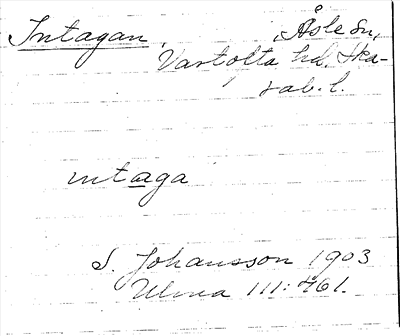 Intagan, Åsle sn,
Vartofta hd. Ska-
rab. l.
intaga
S. Johansson 1903
Ulma 111:461.